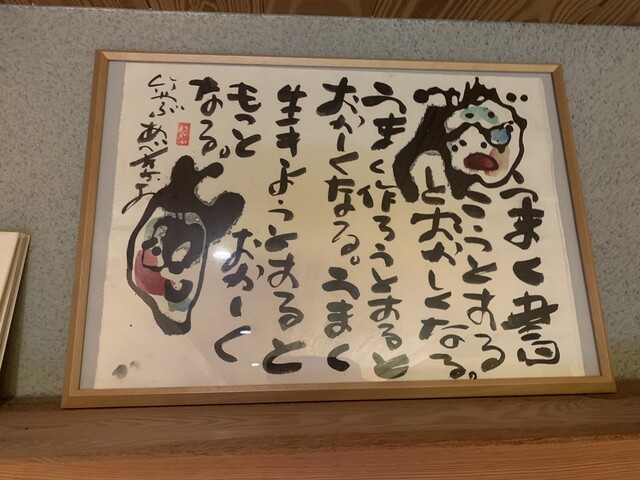 うまく書
こうとする
とおかしくなる。
うまく作ろうとすると
おかしくなる。うまく
生きようとすると
おかしく
もっと
なる。